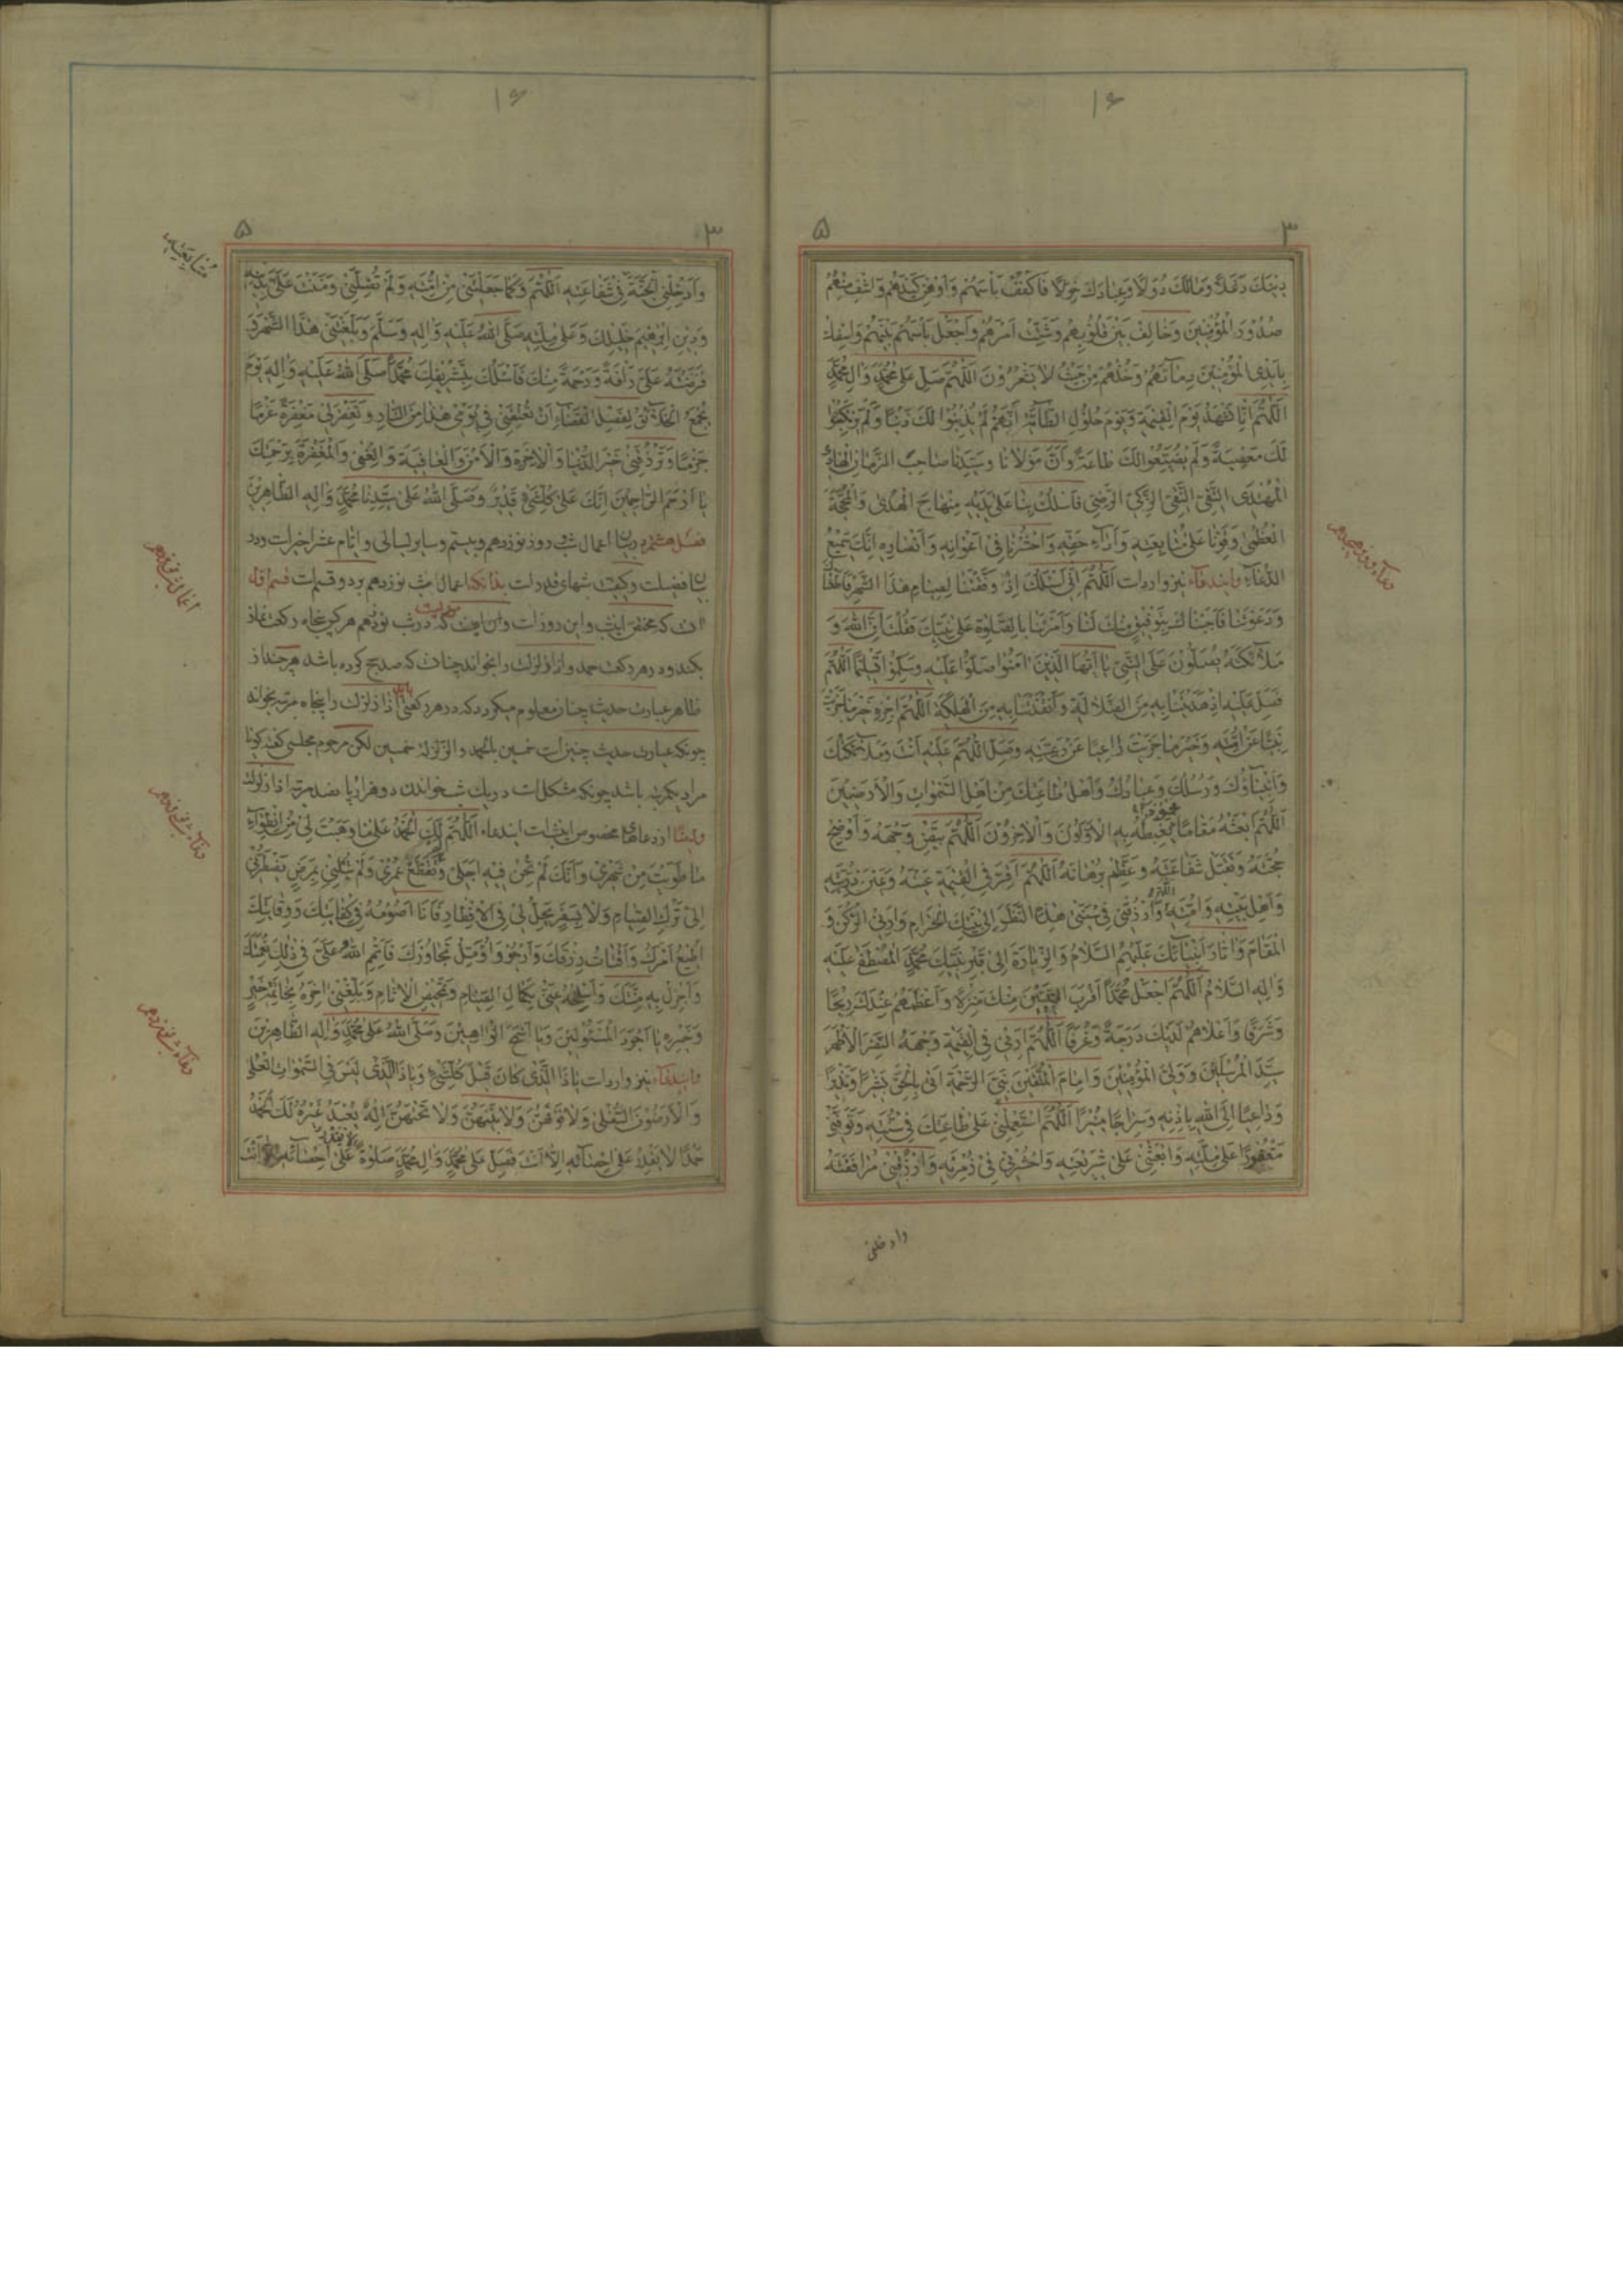 ۱۶
۳ ۵
دینک دغلا و مالک دولا و عبادک خولا فاکفف باسهم و اوهن کیدهم و اشف منهم
صُدُورَ الْمُؤْمِنِینَ وَ خَالِفْ بَیْنَ قُلُوبِهِمْ وَ شَتِّتْ اَمْرَهُمْ وَ اجْعَلْ بَأْسَهُمْ بَیْنَهُمْ وَ اسْفِكْ
بِاَیْدِی الْمُؤْمِنِینَ دِمَآئَهُمْ وَ خُذْهُمْ مِنْ حَیْثُ لا یَشْعُرُونَ اَللّٰهُمَّ صَلِّ عَلی مُحَمَّدٍ وَ الِ مُحَمَّدٍ
اَللّٰهُمَّ اِنَّا نَشْهَدُ یَوْمَ الْقِیٰمَةِ وَ یَوْمَ حُلُولِ الطَّآمَّةِ اَنَّهُمْ لَمْ یُذْنِبُوا لَكَ ذَنْبًا وَ لَمْ یَرْتَکِبُوا
لَكَ مَعْصِیَةً وَ لَمْ یُضَیِّعُوا لَكَ طاعَةً وَ اَنَّ مَوْلانا وَ سَیِّدَنا صاحِبَ الزَّمانِ الْهادِی
الْمُهْتَدِی التَّقِیَّ النَّقِیَّ الزَّکِیَّ الرَّضِیَّ فَاسْلُكْ بِنا عَلی یَدَیْهِ مِنْهاجَ الْهُدی وَ الْمَحَجَّةَ
الْعُظْمی وَ قَوِّنا عَلی مُتابَعَتِهِ وَ اَدآءِ حَقِّهِ وَ احْشُرْنا فی اَعْوانِهِ وَ اَنْصارِهِ اِنَّكَ سَمیعُ
الدُّعآءِ وایندعآء نیز وارد است اَللّٰهُمَّ اِنّی اَسْئَلُكَ اِذْ وَفَّقْتَنا لِصِیامِ هٰذَا الشَّهْرِ
وَ دَعَوْتَنا فَاَجَبْناكَ بِتَوْفیقٍ مِنْكَ لَنا وَ اَمَرْتَنا بِالصَّلٰوةِ عَلی نَبِیِّكَ فَقُلْتَ اِنَّ اللّٰهَ وَ
مَلآئِکَتَهُ یُصَلُّونَ عَلَی النَّبِیِّ یا اَیُّهَا الَّذینَ امَنُوا صَلُّوا عَلَیْهِ وَ سَلِّمُوا تَسْلیمًا اَللّٰهُمَّ
فَصَلِّ عَلَیْهِ اِذْ هَدَیْتَنا بِهِ مِنَ الضَّلالَةِ وَ اَنْقَذْتَنا بِهِ مِنَ الْهَلَکَةِ اَللّٰهُمَّ اجْزِهِ خَیْرَ ما جَزَیْتَ
نَبِیًّا عَنْ اُمَّتِهِ وَ خَیْرَ ما جَزَیْتَ راعِیًا عَنْ رَعِیَّتِهِ وَ صَلِّ اللّٰهُمَّ عَلَیْهِ اَنْتَ وَ مَلآئِکَتُكَ
وَ اَنْبِیآؤُكَ وَ رُسُلُكَ وَ عِبادُكَ وَ اَهْلُ طاعَتِكَ مِنْ اَهْلِ السَّمٰواتِ وَ الْاَرَضینَ
اَللّٰهُمَّ ابْعَثْهُ مَقامًا یَغْبِطُهُ بِهِ الْاَوَّلُونَ وَ الْاٰخِرُونَ اَللّٰهُمَّ بَیِّضْ وَجْهَهُ وَ اَوْضِحْ
حُجَّتَهُ وَ تَقَبَّلْ شَفاعَتَهُ وَ عَظِّمْ بُرْهانَهُ اَللّٰهُمَّ اَقِرَّ فِی الْقِیٰمَةِ عَیْنَهُ وَ عَیْنَ ذُرِّیَّتِهِ
وَ اَهْلِ بَیْتِهِ وَ اُمَّتِهِ اللّٰهم وَ ارْزُقْنی فی سَنَتی هٰذِهِ النَّظَرَ اِلی بَیْتِكَ الْحَرامِ وَ اَرِنِی الرُّکْنَ وَ
الْمَقامَ وَ اٰثارَ اَنْبِیآئِكَ عَلَیْهِمُ السَّلامُ وَ الزِّیارَةَ اِلی قَبْرِ نَبِیِّكَ مُحَمَّدٍ الْمُصْطَفی عَلَیْهِ
وَ الِهِ السَّلامُ اَللّٰهُمَّ اجْعَلْ مُحَمَّدًا اَقْرَبَ النَّبِیّینَ مِنْكَ مَنْزِلَةً وَ اَعْظَمَهُمْ عِنْدَكَ
وَ شَرَفًا وَ اَعْلاهُمْ لَدَیْكَ دَرَجَةً وَ غُرَفًا اَللّٰهُمَّ اَرِنی فِی الْقِیٰمَةِ وَجْهَهُ
سَیِّدَ الْمُرْسَلینَ وَ وَلِیَّ الْمُؤْمِنینَ وَ اِمامَ الْمُتَّقینَ نَبِیَّ الرَّحْمَةِ اَتی بِالْحَقِّ بَشیرًا وَ نَذیرًا
وَ داعِیًا اِلَی اللّٰهِ بِاِذْنِهِ وَ سِراجًا مُنیرًا اَللّٰهُمَّ اسْتَعْمِلْنی عَلی طاعَتِكَ فی سُنَّتِهِ وَ تَوَفَّنی
مَغْفُورًا عَلی مِلَّتِهِ وَ ابْعَثْنی عَلی شَریعَتِهِ وَ احْشُرْنی فی زُمْرَتِهِ وَ ارْزُقْنی مُرافَقَتَهُ
وادخلنی
دعآء روز هیجدهم
۱۶
۳ ۵
وَ اَدْخِلْنِی الْجَنَّةَ فی شَفاعَتِهِ اَللّٰهُمَّ وَ کَما جَعَلْتَنی مِنْ اُمَّتِهِ وَ لَمْ تُضِلَّنی وَ مَنَنْتَ عَلَیَّ بِدینِهِ
وَ دینِ اِبْرٰهیمَ خَلیلِكَ وَ عَلی مِلَّتِهِ صَلَّی اللّٰهُ عَلَیْهِ وَ الِهِ وَ سَلَّمَ وَ بَلَّغْتَنی هٰذَا الشَّهْرَ وَ
فَرَضْتَهُ عَلَیَّ رَأْفَةً وَ رَحْمَةً مِنْكَ فَاَسْئَلُكَ بِتَشْریفِكَ مُحَمَّدًا صَلَّی اللّٰهُ عَلَیْهِ وَ الِهِ یَوْمَ
یُجْمَعُ الْخَلآئِقُ لِفَصْلِ الْقَضآءِ اَنْ تُعْتِقَنی فی یَوْمی هٰذا مِنَ النّارِ وَ تَغْفِرَ لی مَغْفِرَةً عَزْمًا
جَزْمًا وَ تَرْزُقَنی خَیْرَ الدُّنْیا وَ الْاٰخِرَةِ وَ الْاَمْنَ وَ الْعافِیَةَ وَ الْغِنی وَ الْمَغْفِرَةَ بِرَحْمَتِكَ
یا اَرْحَمَ الرّاحِمینَ اِنَّكَ عَلی کُلِّ شَیْءٍ قَدیرٌ وَ صَلَّی اللّٰهُ عَلی سَیِّدِنا مُحَمَّدٍ وَ الِهِ الطّاهِرینَ
فصل هشتم در بیان اعمال شب و روز نوزدهم و بیستم و سایر لیالی و ایام عشر اخیر است و در
بیان فضیلت و کیفیت شبهای قدر است بدانکه اعمال شب نوزدهم بر دو قسم است قسم اول
آن که مختص اینشب و این روز است و آن اینست که در شب نوزدهم هر کس پنجاه رکعت نماز
بکند و در هر رکعت حمد و اذا زلزلت را بخواند چنانکه صدیح کرده باشد هر چند از
ظاهر عبارت حدیث چنان معلوم میگردد که در هر رکعتی اذا زلزلت را پنجاه مرتبه بخواند
چونکه عبارت حدیث چنین است خمسین بالحمد و الزلزلة خمسین لکن مرحوم مجلسی گفته گویا
مراد یکمرتبه باشد چونکه مشکل است در یک شب خواندن دو هزار و پانصد مرتبه اذا زلزلت
وایضا از دعاهای مخصوص اینشب است ایندعاء اَللّٰهُمَّ لَكَ الْحَمْدُ عَلی ما وَهَبْتَ لی مِنِ انْطِوآءِ
ما طَوَیْتَ مِنْ شَهْری وَ اَنَّكَ لَمْ تُحِنْ فیهِ اَجَلی وَ لَمْ تَقْطَعْ عُمْری وَ لَمْ تُبْلِنی بِمَرَضٍ یَضْطَرُّنی
اِلی تَرْكِ الصِّیامِ وَ لا بِسَفَرٍ یَحِلُّ لی فیهِ الْاِفْطارُ فَاَنَا اَصُومُهُ فی کِفایَتِكَ وَ وِقایَتِكَ
اُطیعُ اَمْرَكَ وَ اَقْتاتُ رِزْقَكَ وَ اَرْجُو وَ اُؤَمِّلُ تَجاوُزَكَ فَاَتْمِمِ اللّٰهُمَّ عَلَیَّ فی ذٰلِكَ نِعْمَتَكَ
وَ اَجْزِلْ بِهِ مِنَّتَكَ وَ اسْلَخْهُ عَنّی بِکَمالِ الصِّیامِ وَ تَمْحیصِ الْاٰثامِ وَ بَلِّغْنی اٰخِرَهُ بِخاتِمَةِ خَیْرٍ
وَ خَیْرِهِ یا اَجْوَدَ الْمَسْئُولینَ وَ یا اَسْمَحَ الْواهِبینَ وَ صَلَّی اللّٰهُ عَلی مُحَمَّدٍ وَ الِهِ الطّاهِرینَ
وایندعاء نیز وارد است یا ذَا الَّذی کانَ قَبْلَ کُلِّ شَیْءٍ وَ یا ذَا الَّذی لَیْسَ فِی السَّمٰواتِ الْعُلی
وَ الْاَرَضینَ السُّفْلی وَ لا فَوْقَهُنَّ وَ لا بَیْنَهُنَّ وَ لا تَحْتَهُنَّ اِلٰهٌ یُعْبَدُ غَیْرُهُ لَكَ الْحَمْدُ
حَمْدًا لا یَقْدِرُ عَلی اِحْصآئِهِ اِلّا اَنْتَ فَصَلِّ عَلی مُحَمَّدٍ وَ الِ مُحَمَّدٍ صَلٰوةً لا یَقْدِرُ عَلی اِحْصآئِها اِلّا اَنْتَ
اعمال شب نوزدهم
دعآء شب نوزدهم
دعآء شب نوزدهم